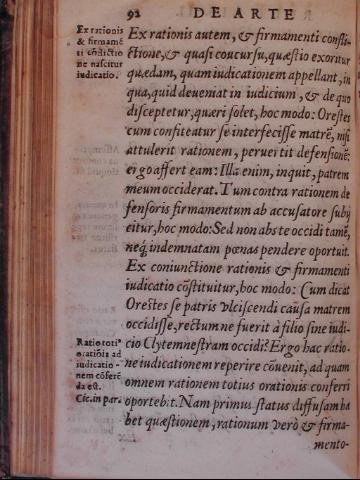 92 DE ARTE
Ex rationis
& firmamē
ti cōflictio
ne nascitur
iudicatio.
Ex rationis autem, & firmamenti confli-
ctione, & quasi concursu, quæstio exoritur
quædam, quam iudicationem appellant, in
qua, quid deueniat in iudicium, & de quo
disceptetur, quæri solet, hoc modo: Orestes
cum confiteatur se interfecisse matrē, nisi
attulerit rationem, peruertit defensionē:
ergo affert eam: Illa enim, inquit, patrem
meum occiderat. Tum contra rationem de
fensoris firmamentum ab accusatore subij
citur, hoc modo: Sed non abs te occidi tamē,
neq; indemnatam pœnas pendere oportuit.
Ex coniunctione rationis & firmamenti
iudicatio cōstituitur, hoc modo: Cum dicat
Orestes se patris vlciscendi causa matrem
occidisse, rectum ne fuerit à filio sine iudi-
cio Clytemnestram occidi? Ergo hac ratio-
ne iudicationem reperire cōuenit, ad quam
omnem rationem totius orationis conferri
oportebit. Nam primus status diffusam ha
bet quæstionem, rationum verò & firma-
mento-
Ratio toti⁹
orationis ad
iudicatio-
nem cōferē
da est.
Cic. in par.